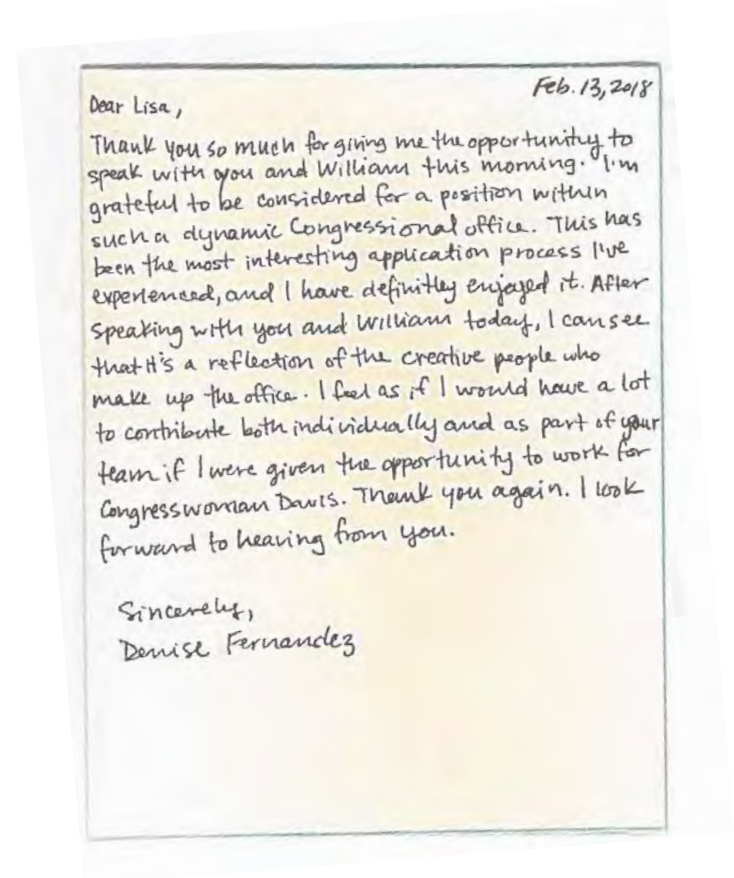 Feb. 13, 2018
Dear Lisa,
Thank you so much for giving me the opportunity to
speak with you and William this morning. I'm
grateful to be considered for a position within
such a dynamic Congressional office. This has
been the most interesting application process I've
experienced, and I have definitley enjoyed it. After
speaking with you and William today, I can see
that it's a reflection of the creative people who
make up the office. I feel as if I would have a lot
to contribute both individually and as part of your
team if I were given the opportunity to work for
Congresswoman Davis. Thank you again. I look
forward to hearing from you.
Sincerely,
Denise Fernandez